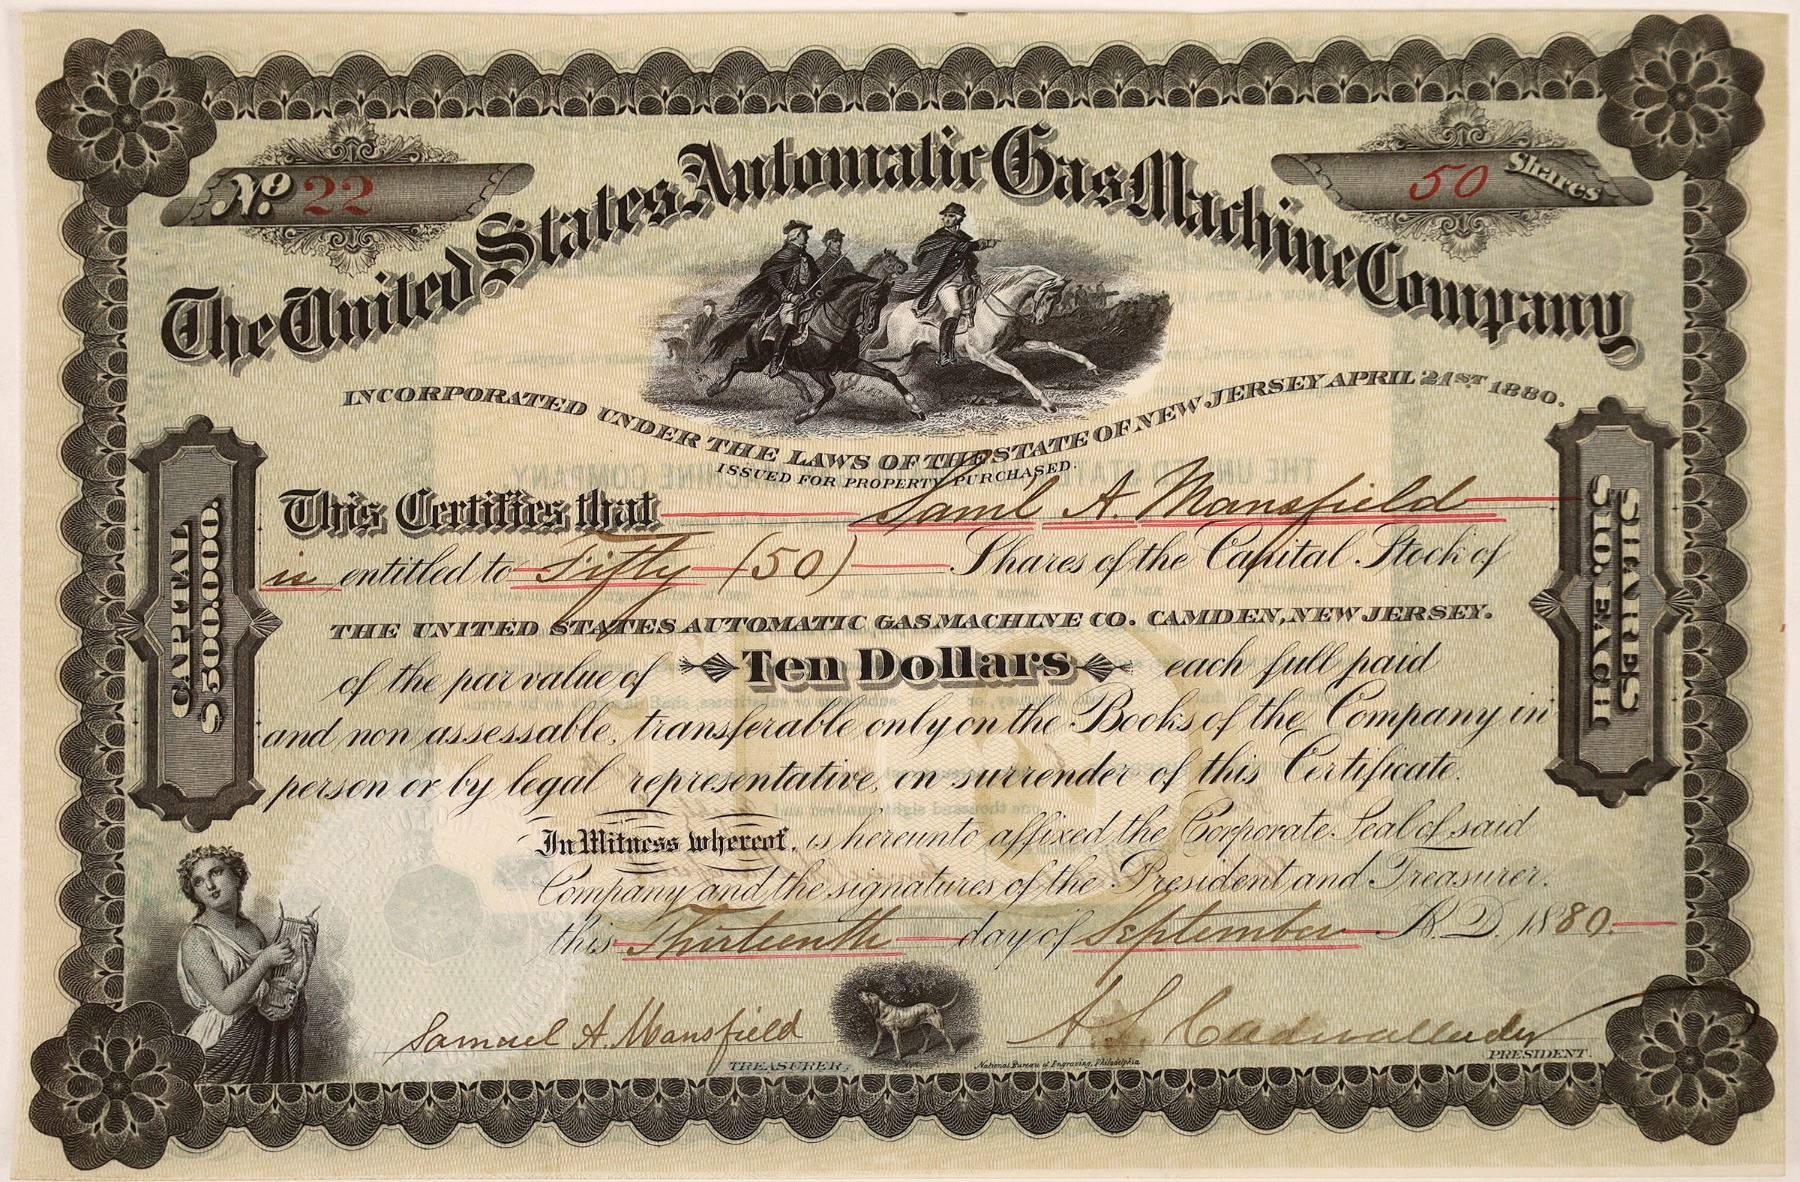 No. 22
50 Shares
The United States Automatic Gas Machine Company
INCORPORATED UNDER THE LAWS OF THE STATE OF NEW JERSEY APRIL 21ST 1880.
ISSUED FOR PROPERTY PURCHASED.
CAPITAL
$500.000.
SHARES
$10. EACH
This Certifies that Saml A. Mansfield
is entitled to Fifty (50) Shares of the Capital Stock of
THE UNITED STATES AUTOMATIC GAS MACHINE CO. CAMDEN, NEW JERSEY.
of the par value of Ten Dollars each full paid
and non assessable, transferable only on the Books of the Company in
person or by legal representative, on surrender of this Certificate.
In Witness whereof, is hereunto affixed the Corporate Seal of said
Company and the signatures of the President and Treasurer.
this Thirteenth day of September A.D. 1880.
Samuel A. Mansfield
TREASURER.
A. S. Cadwallader
PRESIDENT.
National Bureau of Engraving, Philadelphia